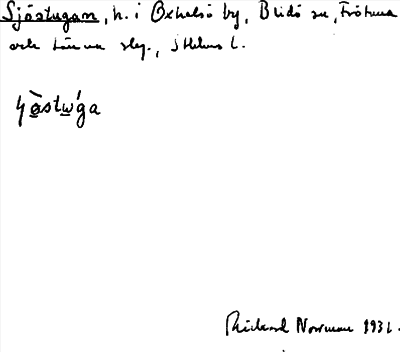 Sjöstugan, h. i Oxhalsö by, Blidö sn, Frötuna
och Länna slg., Sthlms l.
ɧø̀stẃga
Rickard Norrman 1931.